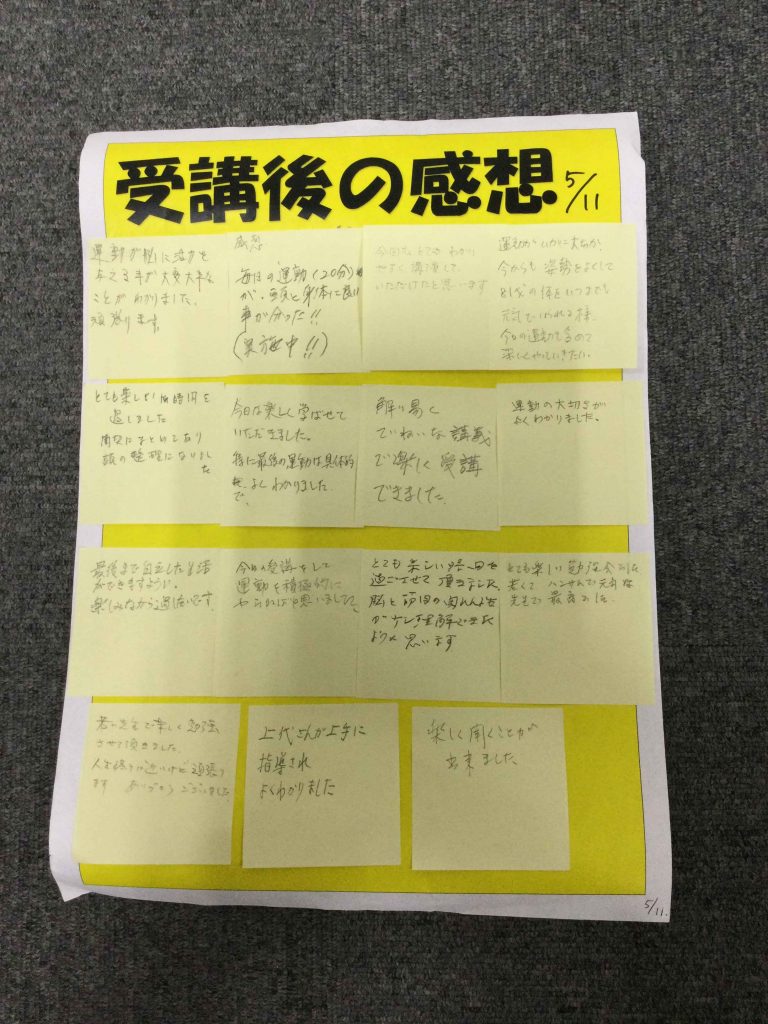 受講後の感想 5/11
運動が脳に活力を
与える事が大変大事な
ことがわかりました。
頑張ります。
感想
毎日の運動(20分)
が、頭と身体に良い
事が分った!!
(実施中!!)
今回も とても わかり
やすく 講演して
いただけたと思います
運動がいかに大切か
今からも 姿勢をよくして
自分の体をいつまでも
元気でいられる様
今日の運動も含めて
楽しくやっていきたい。
とても楽しい 時間を
過しました
簡潔にまとめてあり
頭の整理になりまし
た
今日は楽しく学ばせて
いただきました。
特に最後の運動は具体的
で、よくわかりました
解り易く
ていねいな講義
で楽しく受講
できました
運動の大切さが
よくわかりました。
最後まで自立した生活
ができますように。
楽しみながら過したいです
今日の受講をして
運動を積極的に
やらねばと思いました
とても楽しい 時間を
過ごさせて頂きました
脳と筋肉の関連性
が少し理解できた
ように思います
とても楽しい勉強会でした
若くて ハンサムで元気な
先生で 最高でした
若い先生で楽しく勉強
させて頂きました。
頑張り
ます ありがとうございました
上代さんが上手に
指導され
よくわかりました
楽しく聞くことが
出来ました。
5/11.